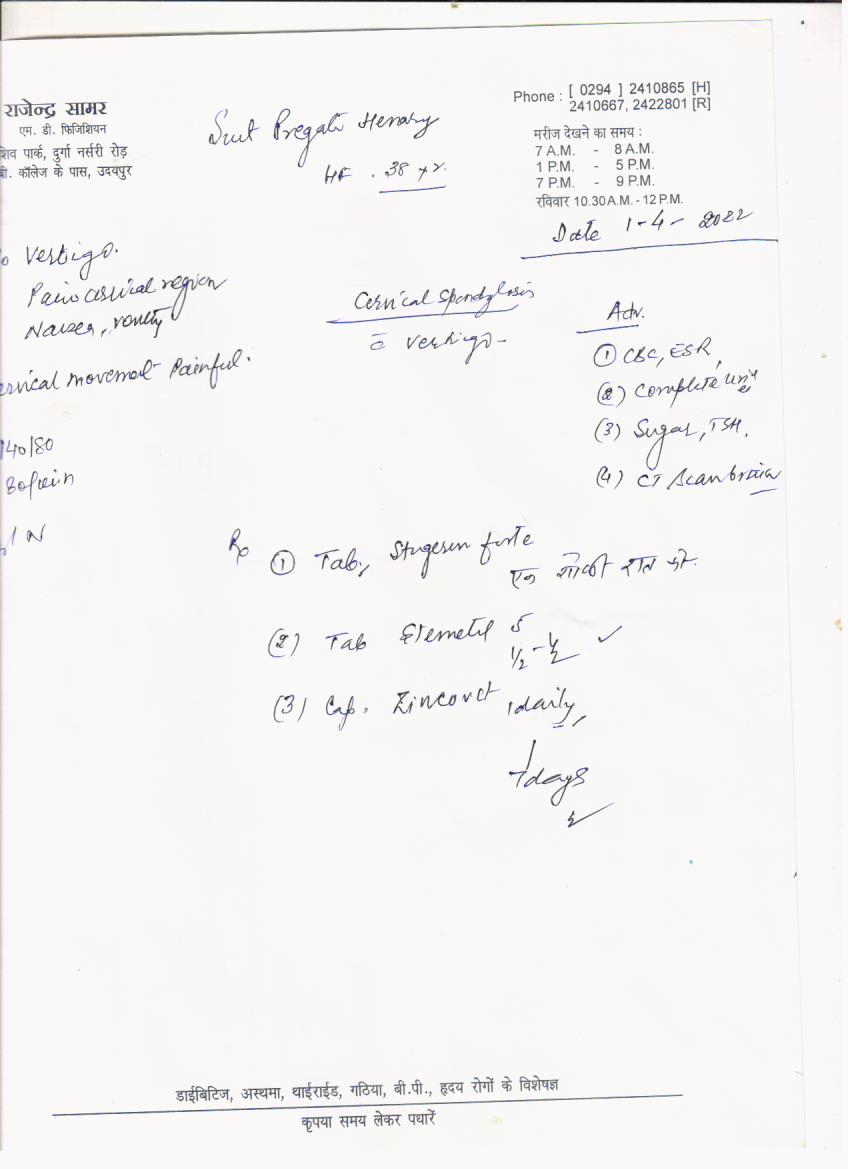 राजेन्द्र सामर
एम. डी. फिजिशियन
शिव पार्क, दुर्गा नर्सरी रोड़
बी. कॉलेज के पास, उदयपुर
Phone : [ 0294 ] 2410865 [H]
2410667, 2422801 [R]
मरीज देखने का समय :
7 A.M. - 8 A.M.
1 P.M. - 5 P.M.
7 P.M. - 9 P.M.
रविवार 10.30 A.M. - 12 P.M.
Smt Pragati
38 yr.
Date 1-4-2022
Vertigo.
Pain cervical region
Cervical movement Painful.
140/80
80/min
N
Cervical Spondylosis
c̄ vertigo-
Adv.
(1) CBC, ESR,
(2) Complete urine
(3) Sugar, TSH,
(4) CT Scan brain
Rp (1) Tab, Stugeron forte
एक गोली रात को
(2) Tab Stemetil 5
1/2 - 1/2
(3) Cap. Zincovit 1 daily,
7 days
डाईबिटिज, अस्थमा, थाईराईड, गठिया, बी.पी., हृदय रोगों के विशेषज्ञ
कृपया समय लेकर पधारें